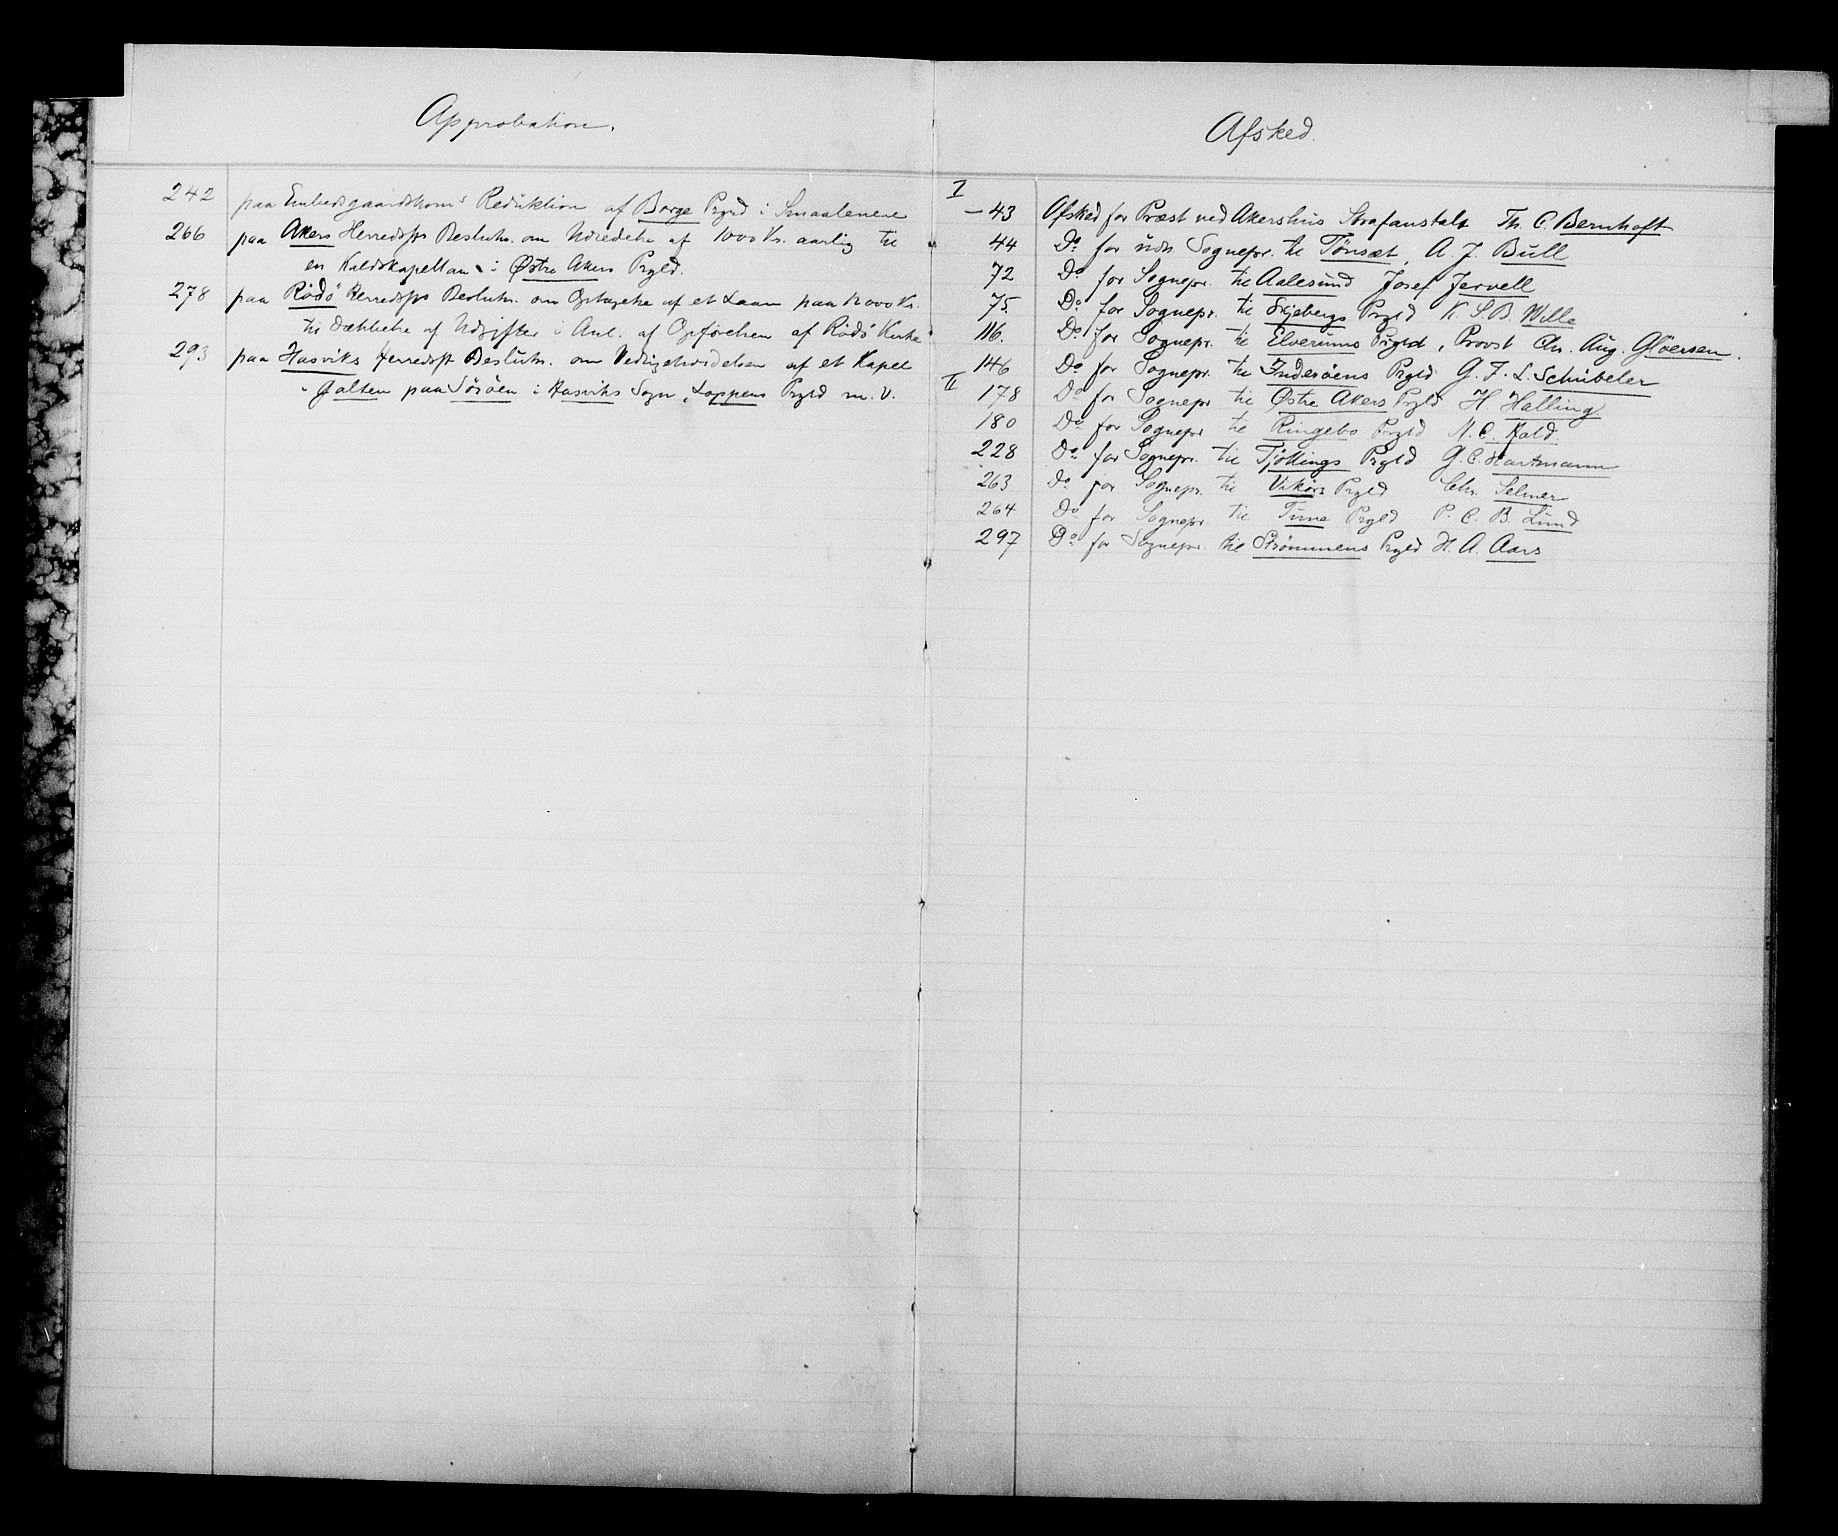 Approbation.
242 paa Embedsgaardskoms Reduktion af Borge Prgld i Smaalenene
266 paa Akers Herredsfs Beslutn. om Udredelse af 1000 Kr. aarlig til
en Kaldskapellan i Østre Akers Prgld.
278 paa Rödö Herredsfs Beslutn. om Optagelse af et Laan paa 12000 Kr.
til Dækkelse af Udgifter i Anl. af Opförelsen af Rödö Kirke
293 paa Hasviks Herredsfs Beslutn. om Vedligeholdelsen af et Kapel
i Galten paa Söröen i Hasviks Sogn, Loppens Prgld m. V.
Afsked.
I
– 43 Afsked for Præst ved Akershus Strafanstalt Th. C. Bernhoft
44 Do for Sognepr. til Tönset, A. J. Bull
72 Do for Sognepr. til Aalesund Josef Jervell
75. Do for Sognepr. til Skjebergs Prgld K. S. B. Wille
116. Do for Sognepr. til Elverums Prgld, Provst Chr. Aug. Glöersen.
146 Do for Sognepr. til Inderöens Prgld G. F. L. Schübeler
II
178 Do for Sognepr til Østre Akers Prgld H. Halling
180 Do for Sognepr til Ringebo Prgld N. C. Hald
228 Do for Sognepr. til Tjöllings Prgld G. C. Hartmann
263 Do for Sognepr. til Vikörs Prgld Chr. Selmer
264 Do for Sognepr. til Tune Prgld P. C. B. Lund
297 Do for Sognepr. til Strömmens Prgld H. A. Aars